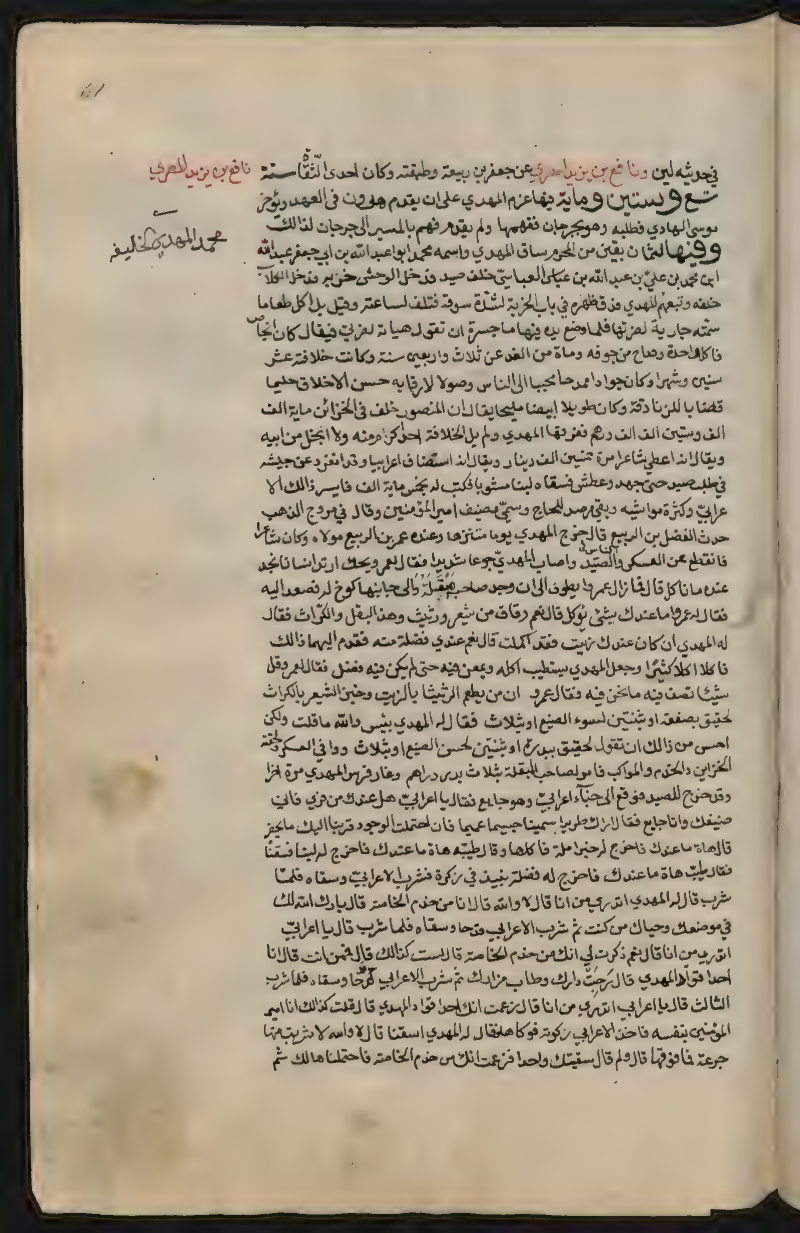 في حديثه لين ونافع بن يزيد المصري عن جعفر بن ربيعة وطبقته وكان احدى الثقاة سنة
نافع بن يزيد المصري
تسع وستين وماية فيها عزم المهدي على ان يقدم هارون في العهد ويؤخر
موسى الهادي فطلبه وهو بجرجان ففهمها ولم يقدم فهم بالمسير الى جرجان لذالك
محمد المهدي الخليفة
وفيها لثمان بقين من المحرم ساق المهدي واسمه محمد ابو عبد الله بن ابي جعفر عبد الله
ابن محمد بن علي بن عبد الله بن عباس العباسي خلف صيد فدخل الوحش خربه فدخل الكلاب
خلفه وتبعهم المهدي فدق ظهره في باب الخربة لشدة سوقه فتلف لساعته وقيل بل اكل طعاما
سمته جارية لضرتها فلما وضع يده فيها ما جسرة ان تقول هيأته لضرتي فيقال كان انجاص
فاكل واحدة وصاح من جوفه ومات من الغد عن ثلاث واربعين سنة وكانت خلافته عشر
سنين وشهرا وكان جوادا ممدحا محببا الى الناس وصولا لاقاربه حسن الاخلاق حليما
قصابا للزنادقة وكان طويلا ابيض مليحا يقال ان المنصور خلف في الخزائن ماية الف
الف وستين الف الف درهم ففرقها المهدي ولم يل الخلافة احد اكرم منه ولا ابخل من ابيه
ويقال انه اعطى شاعرا مرة خمسين الف دينار ويقال انه استضاف اعرابيا وقد انفرد عن جيشه
في طلب صيد حتى جهد وعطش فسقاه لبنا مشوبا فكتب له بخمس ماية الف فايسر ذالك الا
عرابي وكثرة مواشيه وبقي مرصد للحاج وسمي مضيف امير المؤمنين وقال في مروج الذهب
حدث الفضل بن الربيع قال خرج المهدي يوما متنزها وعنده عمر بن الربيع مولاه وكان شاعرا
فانقطع عن العسكر والناس في الصيد واصاب المهدي جوعا شديدا فقال لعمر ويحك ارتد انسانا نجد
عنده ما ناكل قال فما زال عمرو يطوف الى ان وجد صاحب مبقلة والى جانبها كوخ له فصعد اليه
فقال له عمرو اما عندك شيئ يؤكل قال نعم رقاق من شعير ورثيث وهذا البقل والكراث فقال
له المهدي ان كان عندك زيت فقد اكملت قال نعم عندي فضلة منه فقدم اليهما ذالك
فاكلا اكلا كثيرا وجعل المهدي يستطيب اكله ويمعن فيه حتى لم يكن فيه فضل فقال لعمرو قل
شيئا تصف فيه ما نحن فيه فقال عمرو ان من يطعم الرثيثا بالزيت وخبز الشعير بالكراث
لحقيق بصفعة او ثنتين لسوء الصنيع او ثلاث فقال له المهدي بئس والله ما قلت ولكن
احسن من ذالك ان تقول لحقيق ببدرة او ثنتين لحسن الصنيع او ثلاث ووافى العسكر ولحقته
الخزاين والخدم والمواكب فامر لصاحب المبقلة بثلاث بدر دراهم وغار فرس المهدي مرة اخرا
وقد خرج للصيد فوقع الى خباء اعرابي وهو جايع فقال يا اعرابي هل عندك من قرى فاني
ضيفك وانا جايع فقال اراك طريا سمينا جسيما عميما فان احتملت الوجود قربنا اليك ما يحضر
قال هاة ما عندك فاخرج له خبز ملة فاكلها وقال طيبه هاة ما عندك فاخرج له لبنا فسقاه
فقال طيب هاة ما عندك فاخرج له فضلة نبيذ في زكرة فشرب الاعرابي وسقاه فلما
شرب قال له المهدي اتدري من انا قال لا والله قال انا من خدم الخاصة قال بارك الله لك
في موضعك وحياك من كنت ثم شرب الاعرابي قدحا وسقاه فلما شرب قال يا اعرابي
اتدري من انا قال نعم ذكرت لي انك من خدم الخاصة قال لست كذالك قال فمن انت قال انا
احد قواد المهدي قال رحبت دارك وطاب مزارك ثم شرب الاعرابي قدحا وسقاه فلما شرب
الثالث قال يا اعرابي اتدري من انا قال زعمت انك احد قواد المهدي قال فلست كذالك انا امير
المؤمنين بنفسه فاخذ الاعرابي زكوته فوكاها فقال له المهدي اسقنا قال لا والله لا شربت منها
جرعة فما فوقها قال ولم قال سقيتك واحدا فزعمت انك من خدم الخاصة فاحتملناها لك ثم